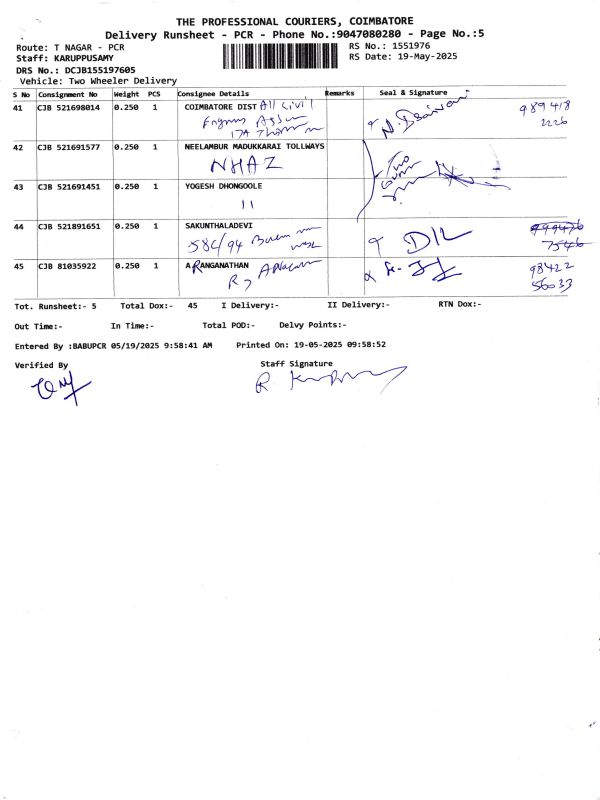 THE PROFESSIONAL COURIERS, COIMBATORE
Delivery Runsheet - PCR - Phone No.:9047080280 - Page No.:5
Route: T NAGAR - PCR
RS No.: 1551976
Staff: KARUPPUSAMY
RS Date: 19-May-2025
DRS No.: DCJB155197605
Vehicle: Two Wheeler Delivery
S No Consignment No Weight PCS Consignee Details Remarks Seal & Signature
41 CJB 521698014 0.250 1 COIMBATORE DIST All Civil 989418
2226
42 CJB 521691577 0.250 1 NEELAMBUR MADUKKARAI TOLLWAYS
NHAZ
43 CJB 521691451 0.250 1 YOGESH DHONGOOLE
11
44 CJB 521891651 0.250 1 SAKUNTHALADEVI
58C/94 DIL
7546
45 CJB 81035922 0.250 1 A RANGANATHAN 98422
56033
Tot. Runsheet:- 5 Total Dox:- 45 I Delivery:- II Delivery:- RTN Dox:-
Out Time:- In Time:- Total POD:- Delvy Points:-
Entered By :BABUPCR 05/19/2025 9:58:41 AM Printed On: 19-05-2025 09:58:52
Verified By Staff Signature